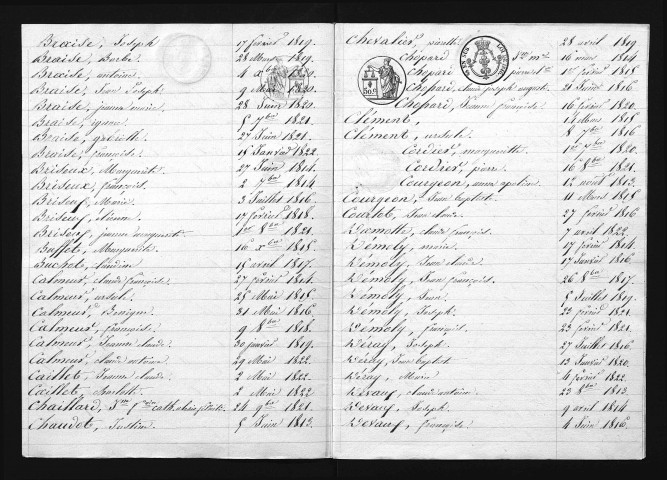 Braise, Joseph 17 février 1819.
Braise, Barbe 28 Mars 1819.
Braise, antoine 4 xbre 1820.
Braise, Jean Joseph 9 Mai 1820.
Braise, jeanne marie 28 Juin 1820.
Braise, ignace 5 7bre 1821.
Braise, 27 Juin 1821.
Braise, françoise 18 Janvier 1822.
Briseux, Marguerite 27 Juin 1811.
Briseux, françois 2 7bre 1814
Briseux, Marie 3 Juillet 1816.
Briseux, étienne 17 février 1818.
Briseux, jeanne marguerite 1er 8bre 1821.
Buffet, Marguerite 16 xbre 1815.
Buchet, claudine 15 avril 1817.
Calmeus, claude françois 27 février 1814.
Calmeus, ursule 25 Mai 1815.
Calmeus, Benigne 31 Mai 1816.
Calmeus, françoise 9 8bre 1818.
Calmeus, Jeanne claude 30 janvier 1819.
Calmeus, claude antoine 29 Mai 1822.
Caillet, Jeanne claude 2 Mai 1822.
Caillet, 2 Mai 1822
Chaillard, catherine 24 9bre 1821.
Chaudot, Justine 5 Juin 1813.
Chevalier, pierrette 28 avril 1819
Chopard 16 mars 1814
Chopard 1er février 1818.
Chopard, claude joseph auguste 21 Juin 1816
Chopard, Jeanne françoise 16 février 1820.
50 c.
Clément, 14 Mars 1815
Clément, ursule 8 7bre 1816
Cordier, marguerite 1er 7bre 1820.
Cordier, pierre 16 8bre 1821.
Courgeon, anne apoline 12 août 1813.
Courgeon, Jean baptiste 11 Mars 1815
Courtot, Jean claude 27 février 1816
Démoly, claude françois 7 avril 1822.
Démoly, marie 17 février 1814.
Démoly, Jean claude 17 Janvier 1816
Démoly, Jean françois 26 8bre 1817.
Démoly, Jean 5 Juillet 1819.
Démoly, Joseph 22 février 1821
Démoly, françois 23 février 1821.
Déray, Joseph 27 Juillet 1816
Déray, Jean baptiste 13 Janvier 1820.
Déray, Marie 4 février 1822.
Devaux, claude antoine 23 8bre 1813.
Devaux, Joseph 9 avril 1814.
Devaux, françoise 4 Juin 1816.